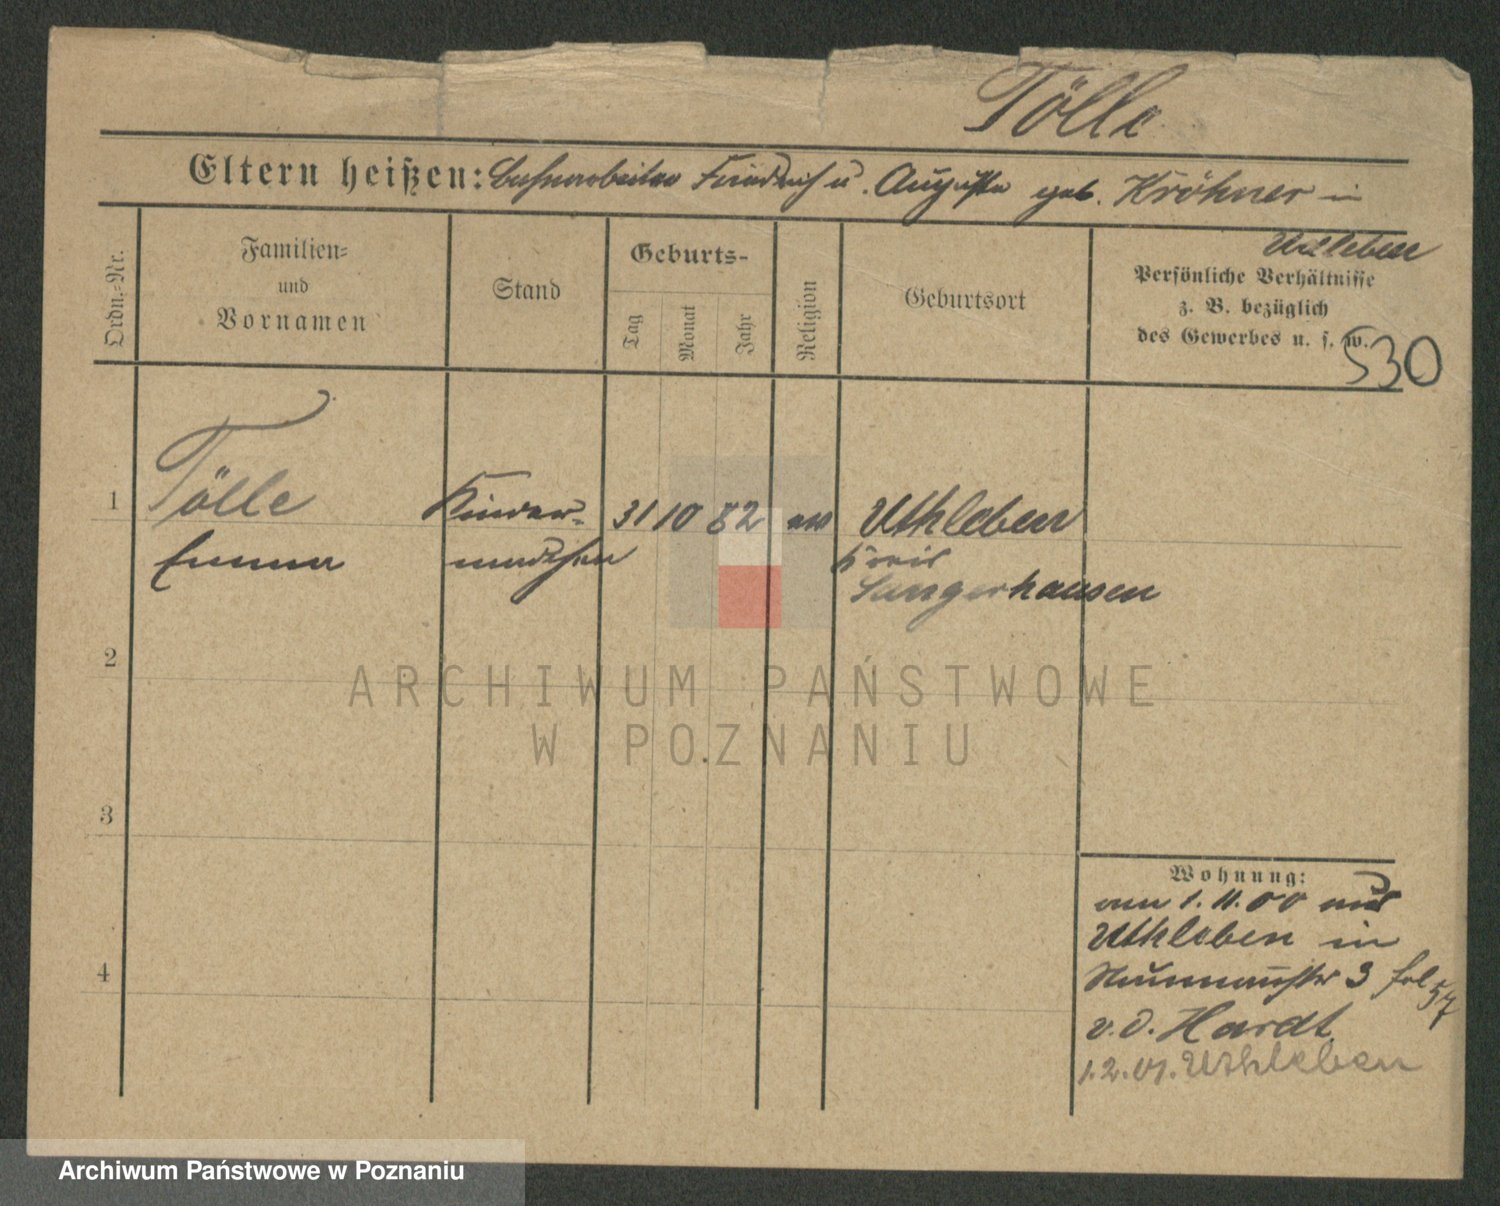 Tölle
Eltern heißen: Bahnarbeiter Friedrich u. Auguste geb. Kröhner in
Uthleben
Ordn.-Nr.
Familien-
und
Vornamen
Stand
Geburts-
Tag
Monat
Jahr
Religion
Geburtsort
Persönliche Verhältnisse
z. B. bezüglich
des Gewerbes u. s. w.
530
1
Tölle
Emma
Kinder-
mädchen
31 10 82 ev
Uthleben
Kreis
Sangerhausen
2
3
4
Wohnung:
am 1.11.00 aus
Uthleben in
3
v. d. Hardt
1.2.01. Uthleben
ARCHIWUM PAŃSTWOWE
W POZNANIU
Archiwum Państwowe w Poznaniu